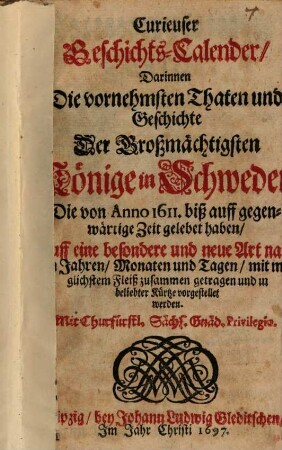 7
Curieuser
Geschichts-Calender/
Darinnen
Die vornehmsten Thaten und
Geschichte
Der Großmächtigsten
Könige in Schweden
Die von Anno 1611. biß auff gegen-
wärtige Zeit gelebet haben/
uff eine besondere und neue Art na
Jahren/ Monaten und Tagen/ mit m
glichstem Fleiß zusammen getragen und in
beliebter Kürtze vorgestellet
werden.
Mit Churfürstl. Sächs. Gnäd. Privilegio.
pzig/ bey Johann Ludwig Gleditschen/
Im Jahr Christi 1697.